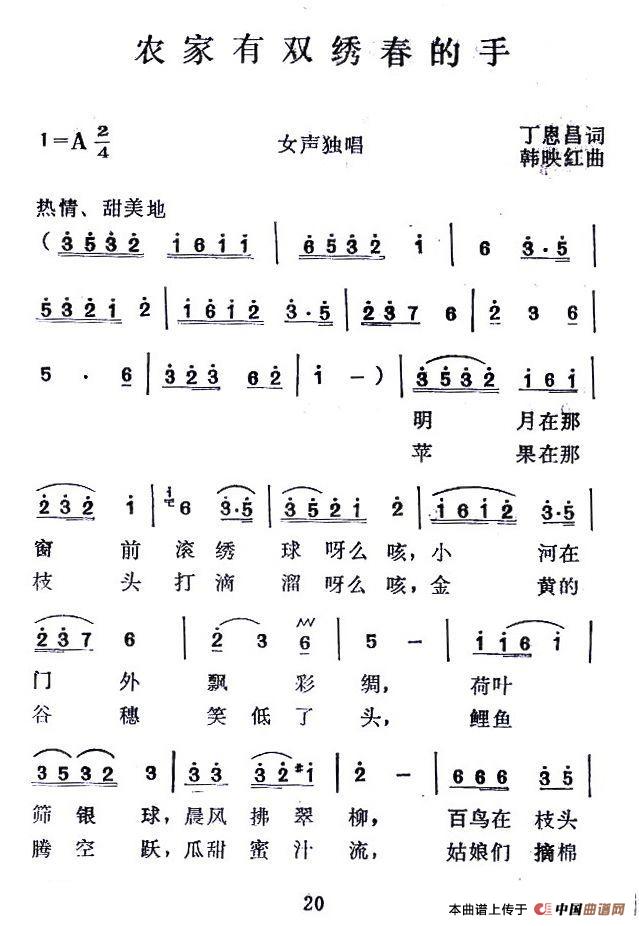 农家有双绣春的手
1=A 2/4
女声独唱
丁恩昌词
韩映红曲
热情、甜美地
( 3 5 3 2 1 6 1 1 | 6 5 3 2 1 | 6 3·5 |
5 3 2 1 2 | 1 6 1 2 3·5 | 2 3 7 6 | 2 3 6 |
5 · 6 | 3 2 3 6 2 | 1 — ) | 3 5 3 2 1 6 1 |
明 月在那
苹 果在那
2 3 2 1 | 6 3·5 | 3 5 2 1 2 | 1 6 1 2 3·5 |
窗 前 滚 绣 球 呀么 咳, 小 河在
枝 头 打 滴 溜 呀么 咳, 金 黄的
2 3 7 6 | 2 3 6 | 5 — | 1 1 6 1 |
门 外 飘 彩 绸, 荷叶
谷 穗 笑 低 了 头, 鲤鱼
3 5 3 2 3 | 3 3 3 2 #1 | 2 — | 6 6 6 3 3 |
筛 银 球, 晨风 拂 翠 柳, 百鸟在 枝头
腾 空 跃, 瓜甜 蜜 汁 流, 姑娘们 摘棉
20
本曲谱上传于 中国曲谱网